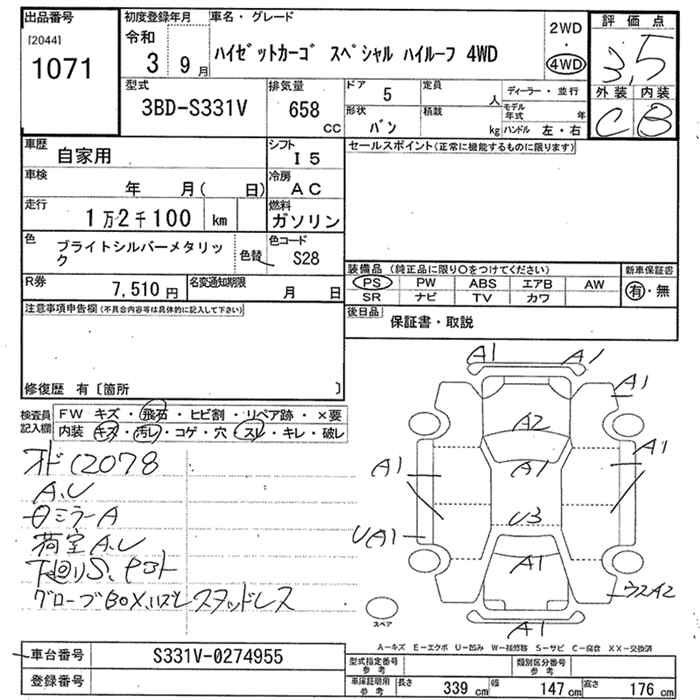 出品番号
[2044]
1071
初度登録年月
令和
3 9月
車名・グレード
ハイゼットカーゴ スペシャル ハイルーフ 4WD
2WD
・
4WD
評価点
3.5
外装 内装
C B
型式
3BD-S331V
排気量
658
CC
ドア
5
定員
人
形状
バン
積載
kg
ディーラー・並行
モデル年式 年
ハンドル 左・右
車歴
自家用
シフト
I5
セールスポイント(正常に機能するものに限ります)
車検
年 月( 日)
冷房
AC
走行
1万2千100 km
燃料
ガソリン
色
ブライトシルバーメタリック
色替
色コード
S28
R券
7,510円
名変通知期限
月 日
装備品 (純正品に限り○をつけてください)
PS PW ABS エアB AW
SR ナビ TV カワ
新車保証書
有・無
後日品
保証書・取説
注意事項申告欄(不具合内容等は具体的に記入して下さい)
修復歴 有〔箇所 〕
検査員記入欄
FW キズ・飛石・ヒビ割・リペア跡・×要
内装 キズ・汚レ・コゲ・穴・スレ・キレ・破レ
オド12078
A.U
ミラーA
荷室A.U
下廻りS.
グローブBOXハズレ スタッドレス
A1 A1
A1
A2
A1
A1 A1
U3
UA1
A1
A2
A1
スペア
A-キズ E-エクボ U-凹み W-補修跡 S-サビ C-腐食 XX-交換済
車台番号
S331V-0274955
登録番号
型式指定番号 参考
類別区分番号 参考
車庫証明用 参考
長さ 339cm
幅 147cm
高さ 176cm